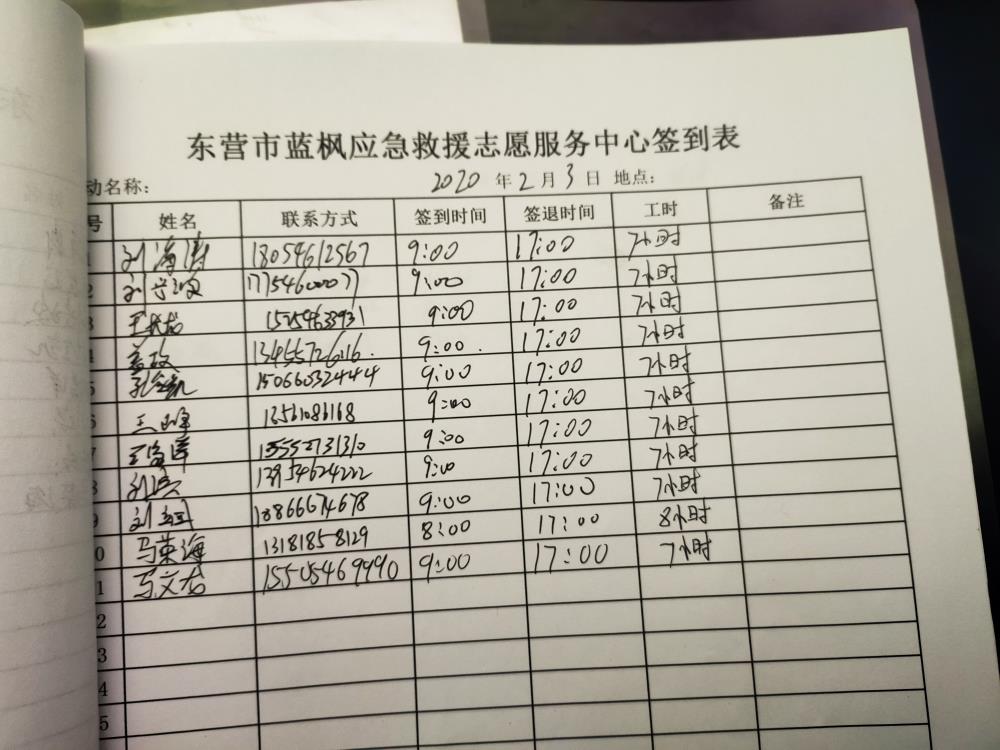 东营市蓝枫应急救援志愿服务中心签到表
动名称： 2020 年 2 月 3 日 地点：
号 姓名 联系方式 签到时间 签退时间 工时 备注
刘海涛 18054612567 9:00 17:00 7小时
2 17754600077 9:00 17:00 7小时
3 9:00 17:00 7小时
4 9:00. 17:00 7小时
5 15066032444 9:00 17:00 7小时
6 王峰 9:00 17:00 7小时
7 13552731310 9:00 17:00 7小时
8 13954624222 9:00 17:00 7小时
9 18866674678 9:00 17:00 7小时
0 马荣海 13181858129 8:00 17:00 8小时
1 马文龙 15505469990 9:00 17:00 7小时
2
3
4
5